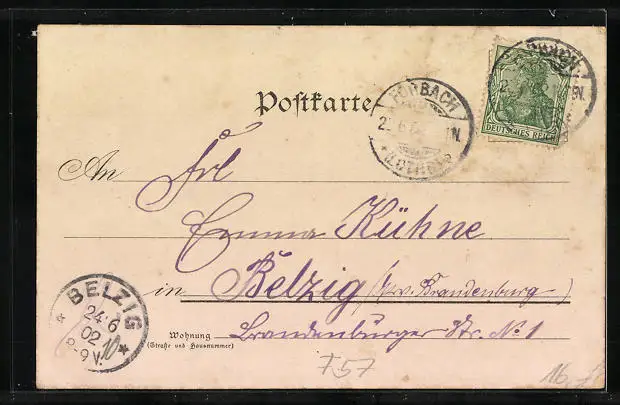 Postkarte
FORBACH
DEUTSCHES REICH
An Frl
Emma Kühne
in Belzig (Prv. Brandenburg)
Wohnung
(Straße und Hausnummer)
Brandenburger Str. No 1
BELZIG
24.6
02
8-9V.
10
T57
16